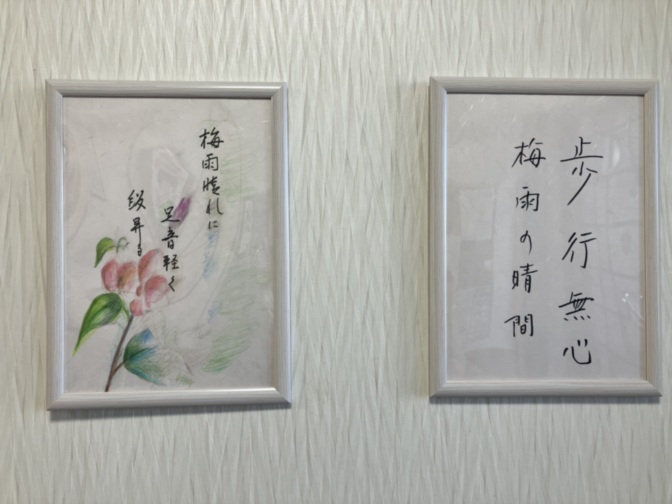 梅雨晴れに
足音軽く
歩行無心
梅雨の晴間